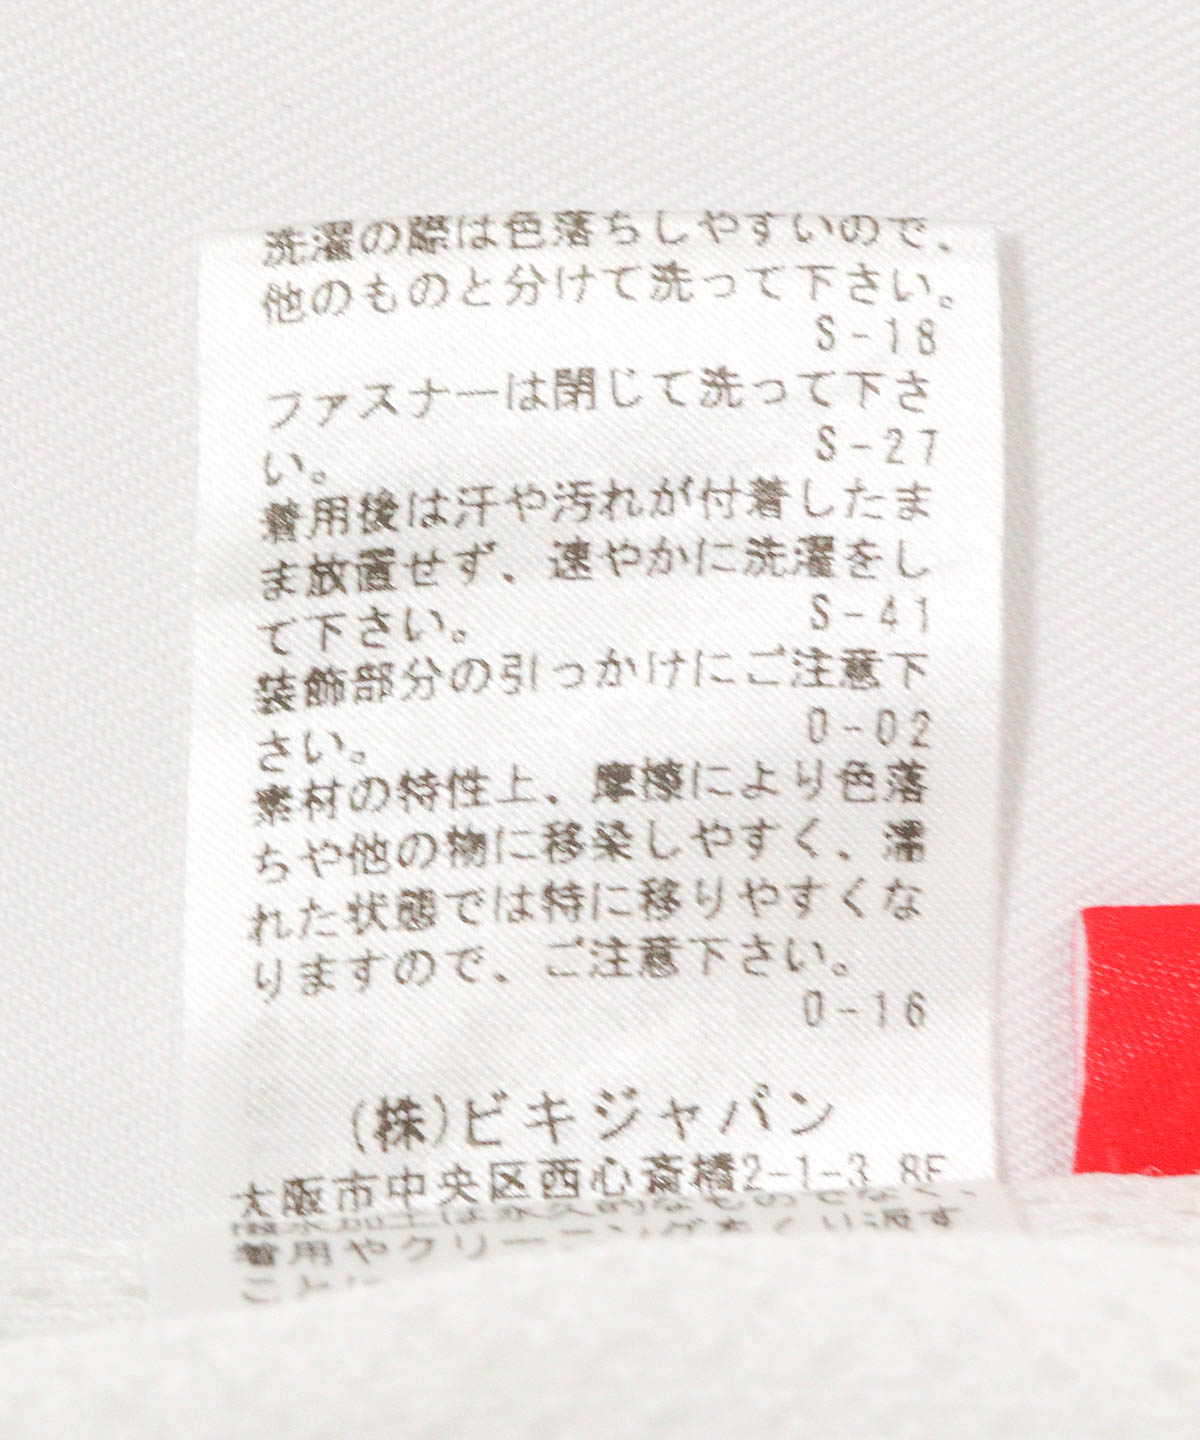 洗濯の際は色落ちしやすいので、
他のものと分けて洗って下さい。
S-18
ファスナーは閉じて洗って下さ
い。 S-27
着用後は汗や汚れが付着したま
ま放置せず、速やかに洗濯をし
て下さい。 S-41
装飾部分の引っかけにご注意下
さい。 0-02
素材の特性上、摩擦により色落
ちや他の物に移染しやすく、濡
れた状態では特に移りやすくな
りますので、ご注意下さい。
0-16
(株)ビキジャパン
大阪市中央区西心斎橋2-1-3 8F
は永久的なものでなく、
着用やクリーニングをくり返す
ことに